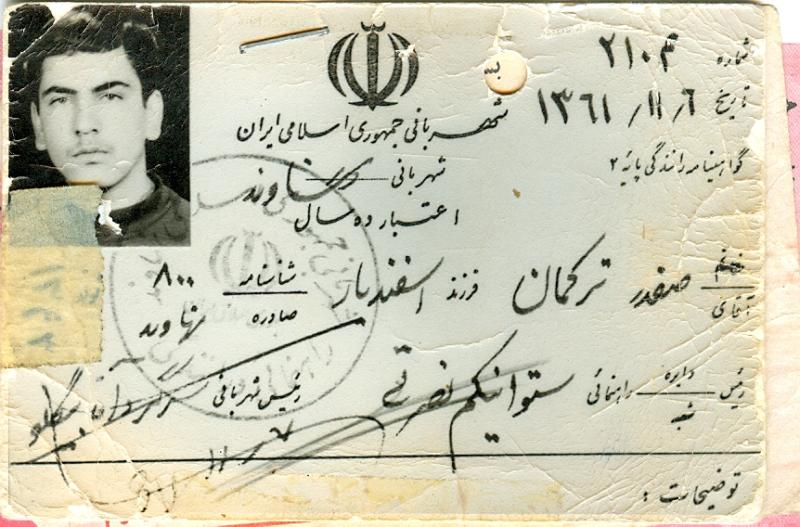 شماره ۲۱۰۳
تاریخ ۱۳۶۱/۱۱/۶
شهربانی جمهوری اسلامی ایران
گواهینامه رانندگی پایه ۲
شهربانی نهاوند
اعتبار ده سال
خانم
آقای صفدر ترکمان فرزند اسفندیار شناسنامه ۸۰۰
صادره نهاوند
رئیس دایره راهنمائی ستوانیکم نصرتی
شعبه
رئیس شهربانی
توضیحات :